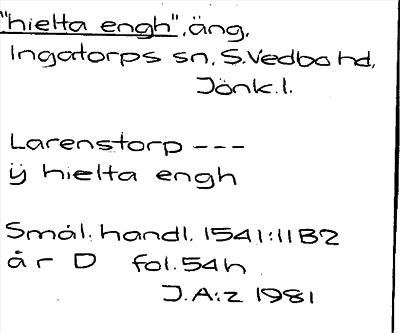 "hielta engh", äng,
Ingatorps sn, S.Vedbo hd,
Jönk.l.
Larenstorp ---
ÿ hielta engh
Smål. handl. 1541:11 B2
år D fol.54h
J.A:z 1981